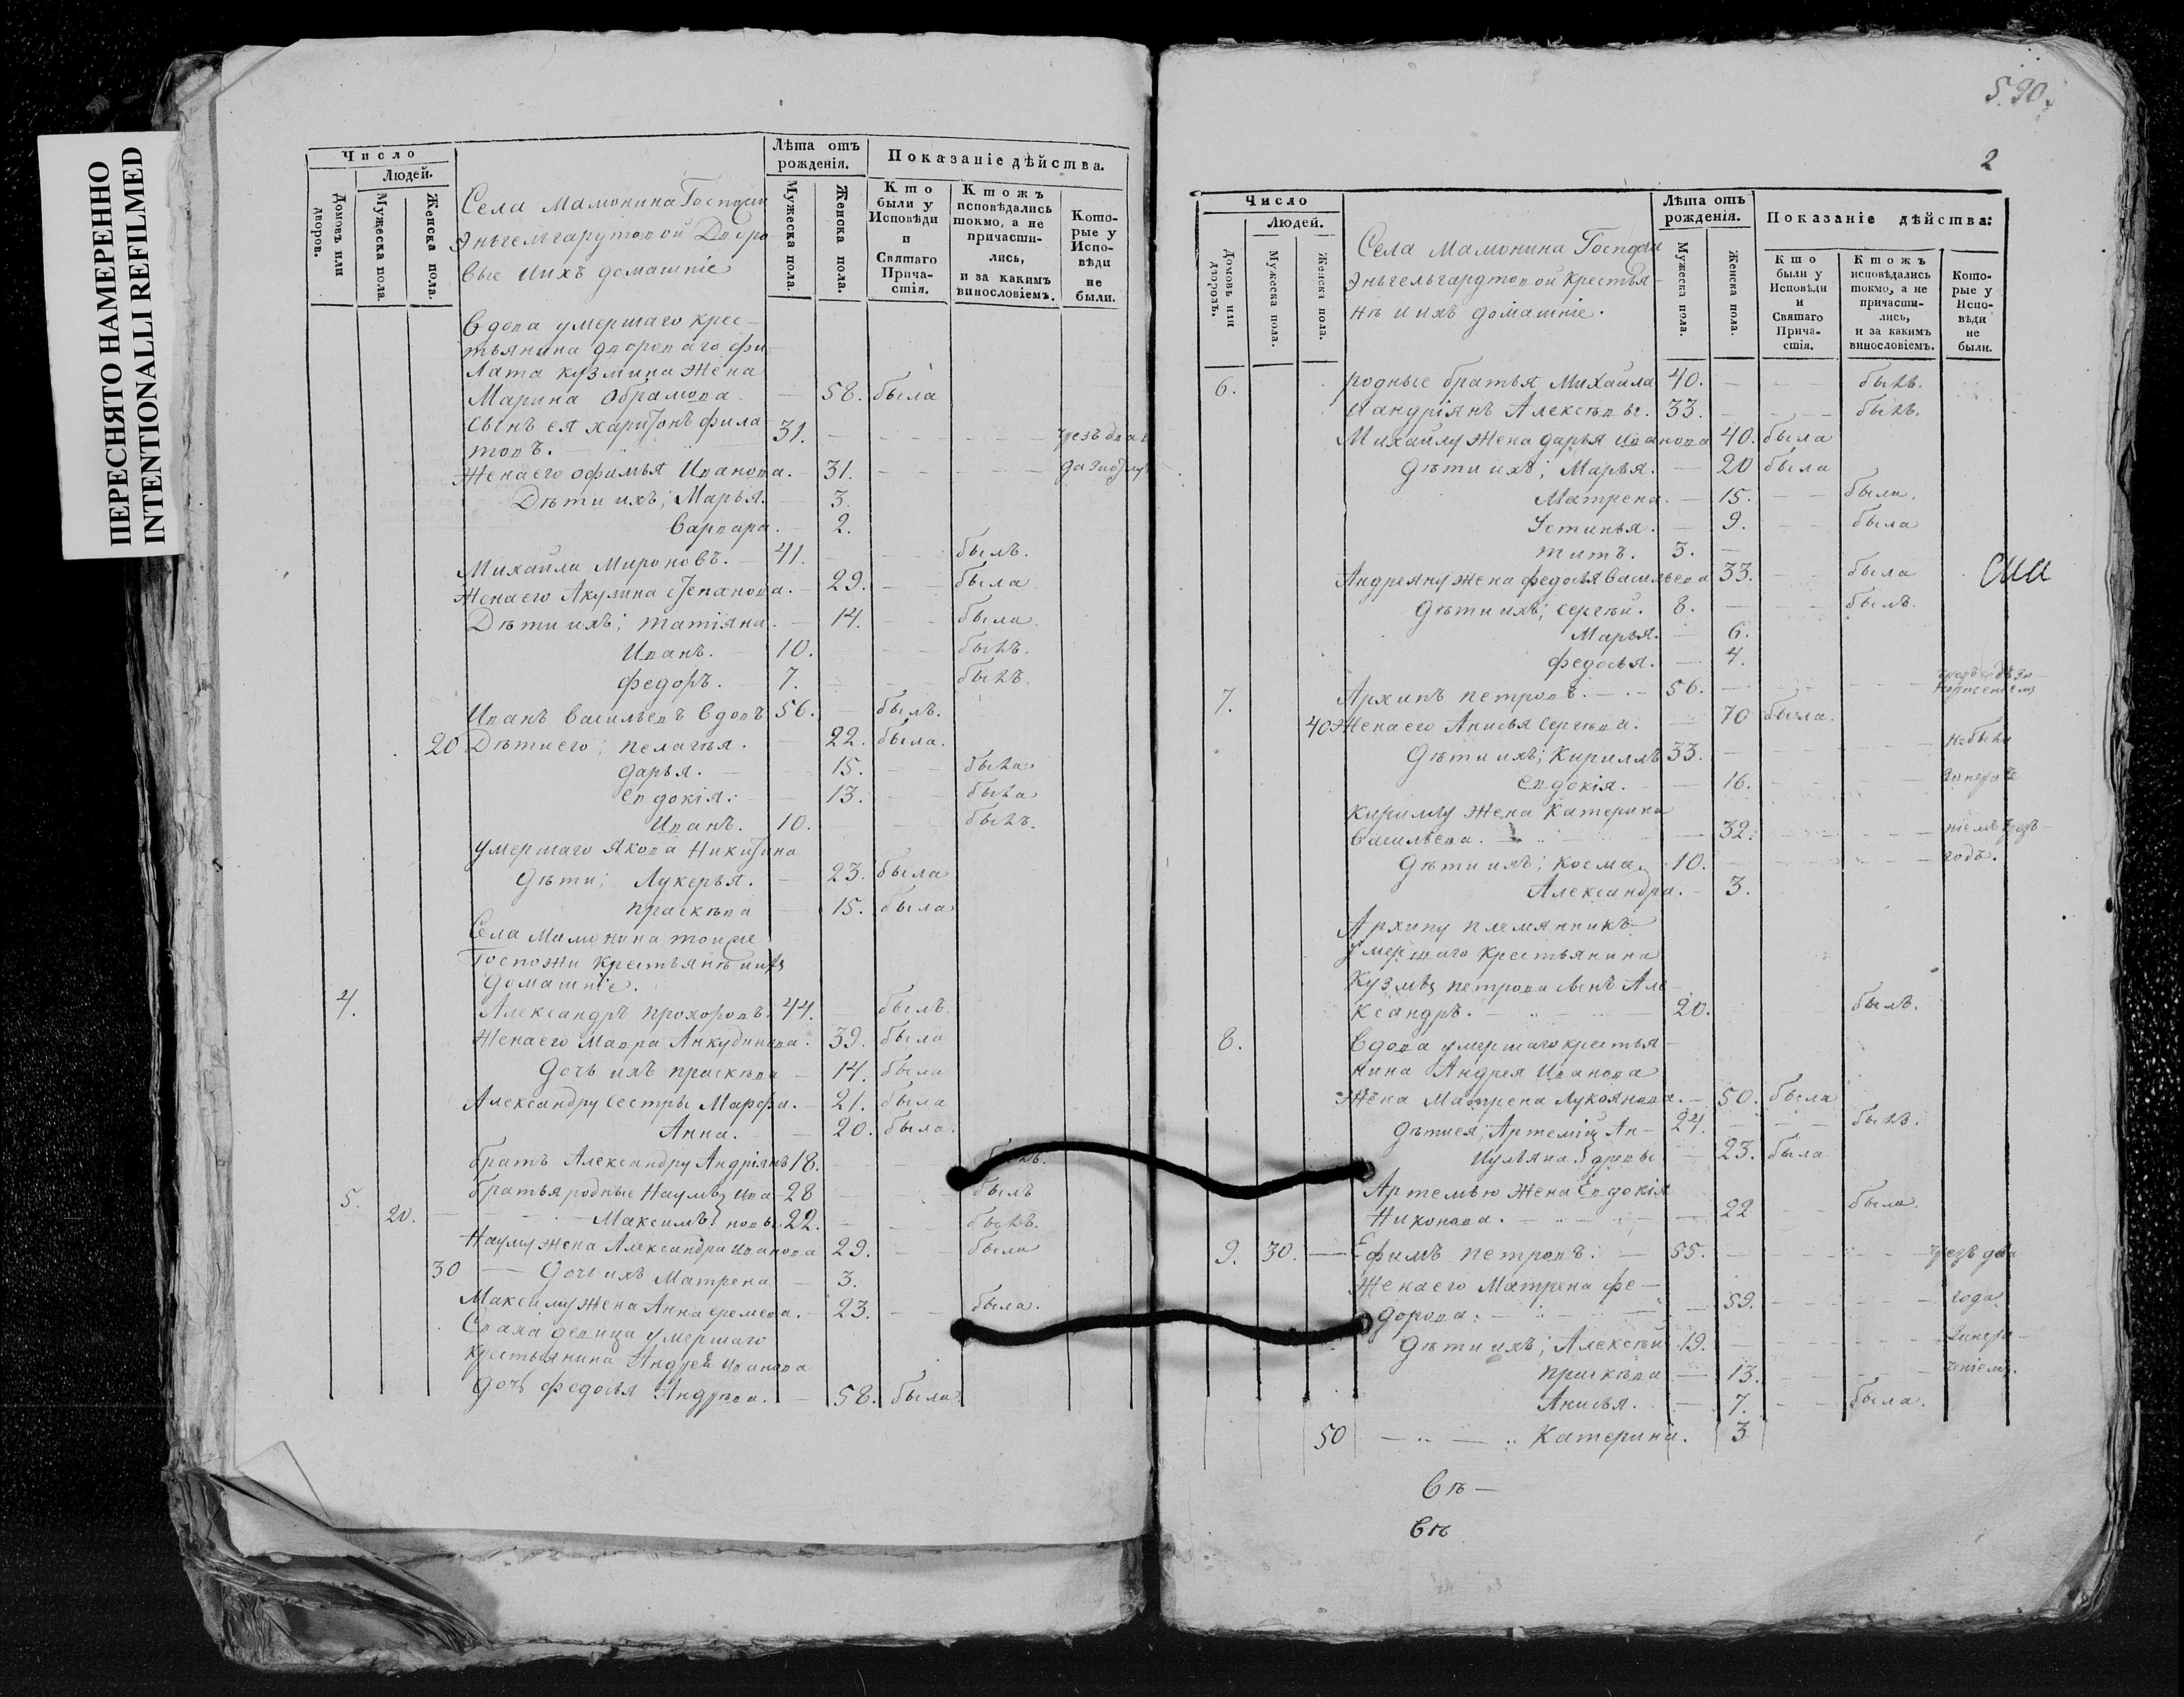 ПЕРЕСНЯТО НАМЕРЕННО
INTENTIONALLI REFILMED
Число
Людей.
Домовъ или дворовъ.
Мужеска пола.
Женска пола.
Села Мамонина Госпожи
Энгельгардтовой Дворо-
вые ихъ домашніе
Лѣта отъ рожденія.
Мужеска пола.
Женска пола.
Показаніе дѣйства.
Кто были у Исповѣди и Святаго Прича-стія.
Ктожъ исповѣдались токмо, а не причасти-лись, и за какимъ винословіемъ.
Кото-рые у Испо-вѣди не были.
Вдова умершаго крес-
тьянина двороваго Фи-
лата Кузмина жена
Марина Обрамова — 58. была
Сынъ ея Харитонъ Фила
товъ. 31.
Жена его Офимья Иванова. — 31.
Дѣти ихъ; Марья. 3.
Варвара. 2.
Михайла Мироновъ. — 41. былъ.
Жена его Акулина Степанова. — 29. была
Дѣти ихъ; Татіяна. — 14. была
Иванъ. 10. былъ.
Федоръ. 7. былъ.
Иванъ Васильевъ вдовъ 56. былъ.
20 Дѣти его; Пелагѣя. 22. была.
Дарья. — 15. была
Евдокія. 13. была
Иванъ. 10. былъ.
Умершаго Якова Никитина
Дѣти; Лукерья. — 23. была
Праскѣва — 15. была
Села Мамонина тойже
Госпожи крестьянѣ и ихъ
домашніе.
4. Александръ Прохоровъ. 44. былъ.
Жена его Мавра Анкудинова. 39. была
Дочь ихъ Праскѣва — 14. была
Александру Сестры Марфа. — 21. была
Анна. — 20. была.
братъ Александру Андріянъ 18. былъ.
5. братья родные Наумъ Ива- 28 былъ
20. — Максимъ новы. 22. былъ.
Науму жена Александра Иванова 29. была
30 — Дочь ихъ Матрена — 3.
Максиму жена Анна Еремеева. — 23. была.
крестьянина Андрея Иванова
дочь Федосья Андрѣева. — 58. была
5.90.
2
Число
Людей.
Домовъ или дворовъ.
Мужеска пола.
Женска пола.
Села Мамонина Госпожи
Энгельгардтовой Крестья-
нѣ и ихъ домашніе.
Лѣта отъ рожденія.
Мужеска пола.
Женска пола.
Показаніе дѣйства:
Кто были у Исповѣди и Святаго Прича-стія.
Ктожъ исповѣдались токмо, а не причасти-лись, и за какимъ винословіемъ.
Кото-рые у Испо-вѣди не были.
6. родные братья Михайла 40. былъ.
и Андріянъ Алексѣевы. 33. былъ.
Михайлу жена Дарья Иванова 40. была
Дѣти ихъ; Марья. — 20 была
Матрена. — 15. была.
Устинья. — 9. была
Титъ. 3.
Андреяну жена Федосья Васильева 33. была
Дѣти ихъ; Сергѣй. 8. былъ.
Марья. 6.
Федосья. — 4.
7. Архипъ Петровъ. — 56.
40 Жена его Анисья Сергѣева. — 70 была.
Дѣти ихъ; Кириллъ 33. не были
Евдокія. — 16.
Кириллу жена Катерина
Васильева. — 32. ніемъ чрезъ
Дѣти ихъ; Косма. 10. годъ.
Александра. — 3.
Архипу племянникъ
умершаго крестьянина
Кузмы Петрова сынъ Але-
ксандръ. — 20. былъ.
8. Вдова умершаго крестья-
нина Андрея Иванова
жена Матрена Лукоянова. — 50. была
Дѣти ея; Артемій Ан- 24. былъ.
Иульяна дреевы — 23. была
Артемью жена Евдокія
Никонова. — 22 была.
9. 30. — Ефимъ Петровъ. — 55. чрезъ два
Жена его Матрена Фе-
дорова. — 59. года
Дѣти ихъ; Алексѣй 19.
Праскѣва — 13.
Анисья. — 7. была.
50 — Катерина. 3
Въ —
Въ